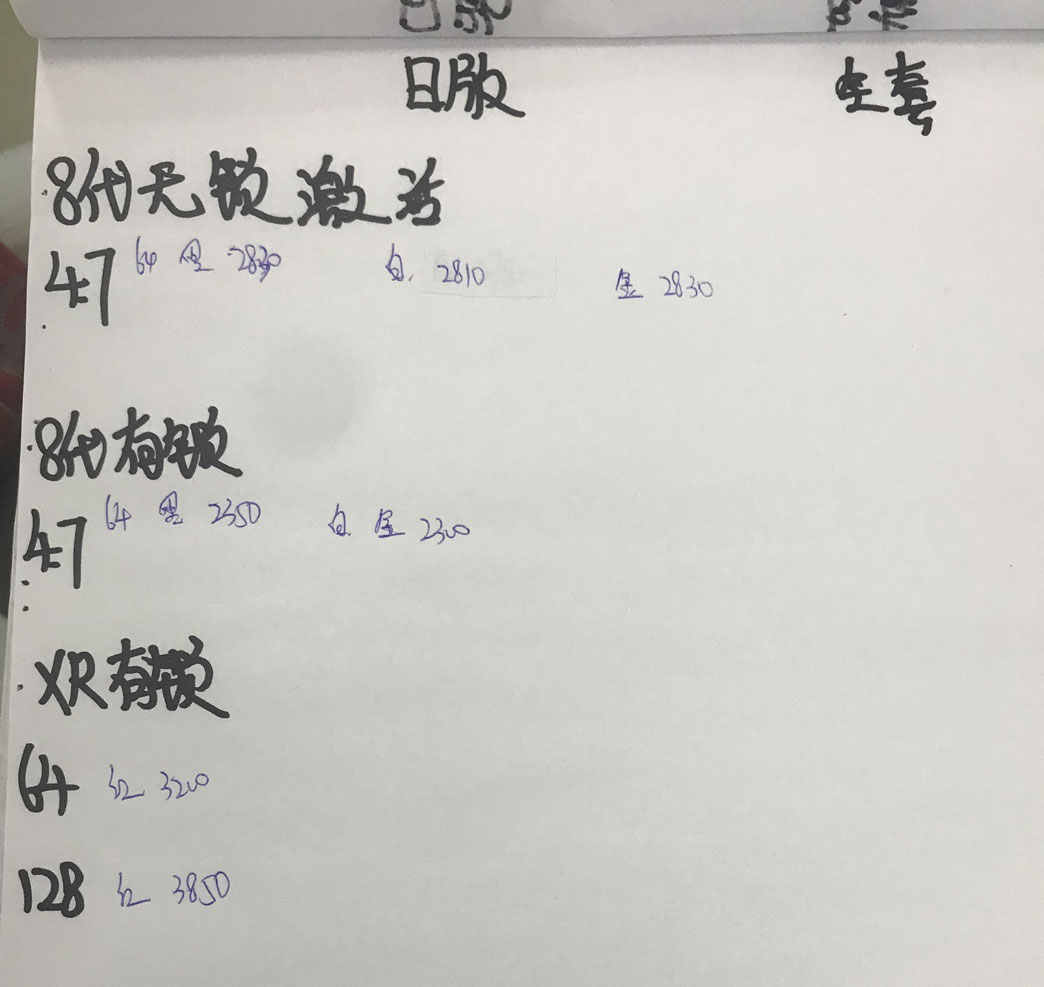 日版 全套
8代无锁激活
4.7 64 黑 2830 白 2810 金 2830
8代有锁
4.7 64 黑 2350 白 金 2300
XR有锁
64 红 3200
128 红 3850